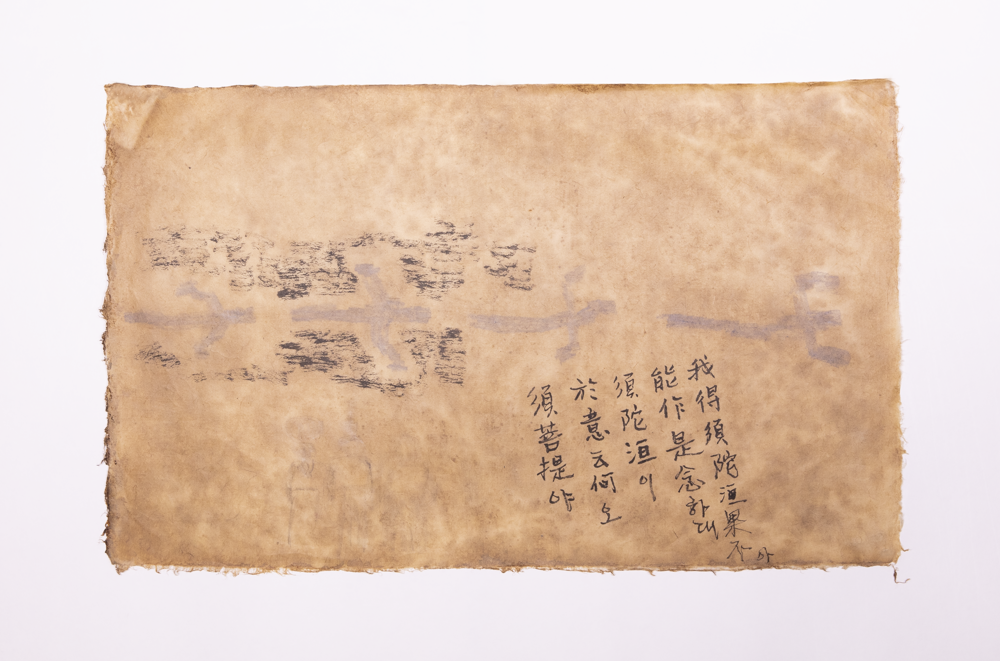 須菩提야
於意云何오
須陀洹이
能作是念하대
我得須陀洹果不아